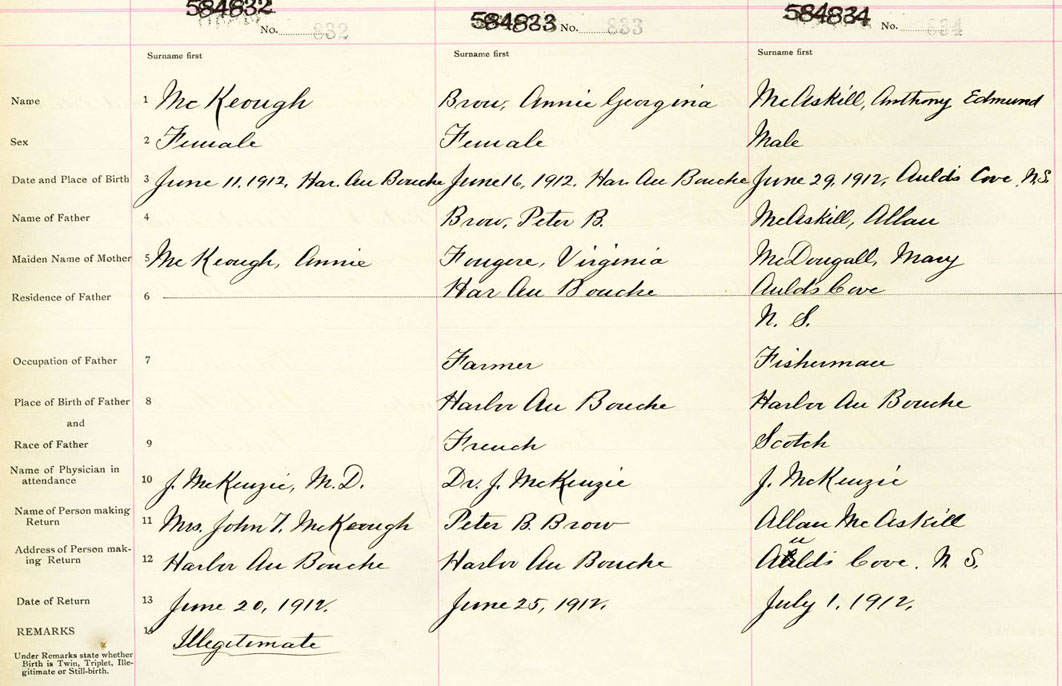 584832 584833 584834
No. 832 No. 833 No. 834
Surname first Surname first Surname first
Name 1 McKeough Brow, Annie Georgina McAskill, Anthony Edmund
Sex 2 Female Female Male
Date and Place of Birth 3 June 11, 1912, Har. Au Bouche June 16, 1912, Har. Au Bouche June 29, 1912, Aulds Cove, N.S.
Name of Father 4 Brow, Peter B. McAskill, Allan
Maiden Name of Mother 5 McKeough, Annie Fougere, Virginia McDougall, Mary
Residence of Father 6 Har Au Bouche Aulds Cove
N. S.
Occupation of Father 7 Farmer Fisherman
Place of Birth of Father 8 Harbor Au Bouche Harbor Au Bouche
and
Race of Father 9 French Scotch
Name of Physician in
attendance 10 J. McKenzie, M.D. Dr. J. McKinzie J. McKinzie
Name of Person making
Return 11 Mrs. John T. McKeough Peter B. Brow Allan McAskill
Address of Person mak-
ing Return 12 Harbor Au Bouche Harbor Au Bouche Aulds Cove. N. S.
Date of Return 13 June 20, 1912. June 25, 1912. July 1, 1912.
REMARKS 14 Illegitimate
Under Remarks state whether
Birth is Twin, Triplet, Ille-
gitimate or Still-birth.